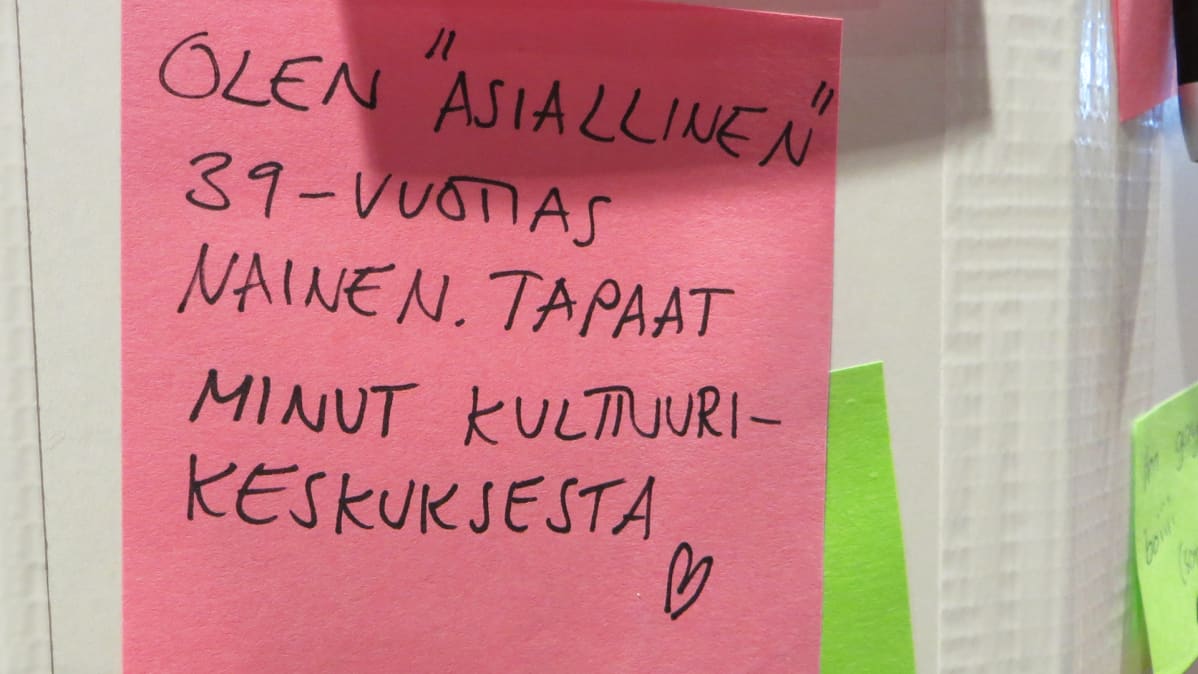 OLEN "ASIALLINEN"
39-VUOTIAS
NAINEN. TAPAAT
MINUT KULTTUURI-
KESKUKSESTA